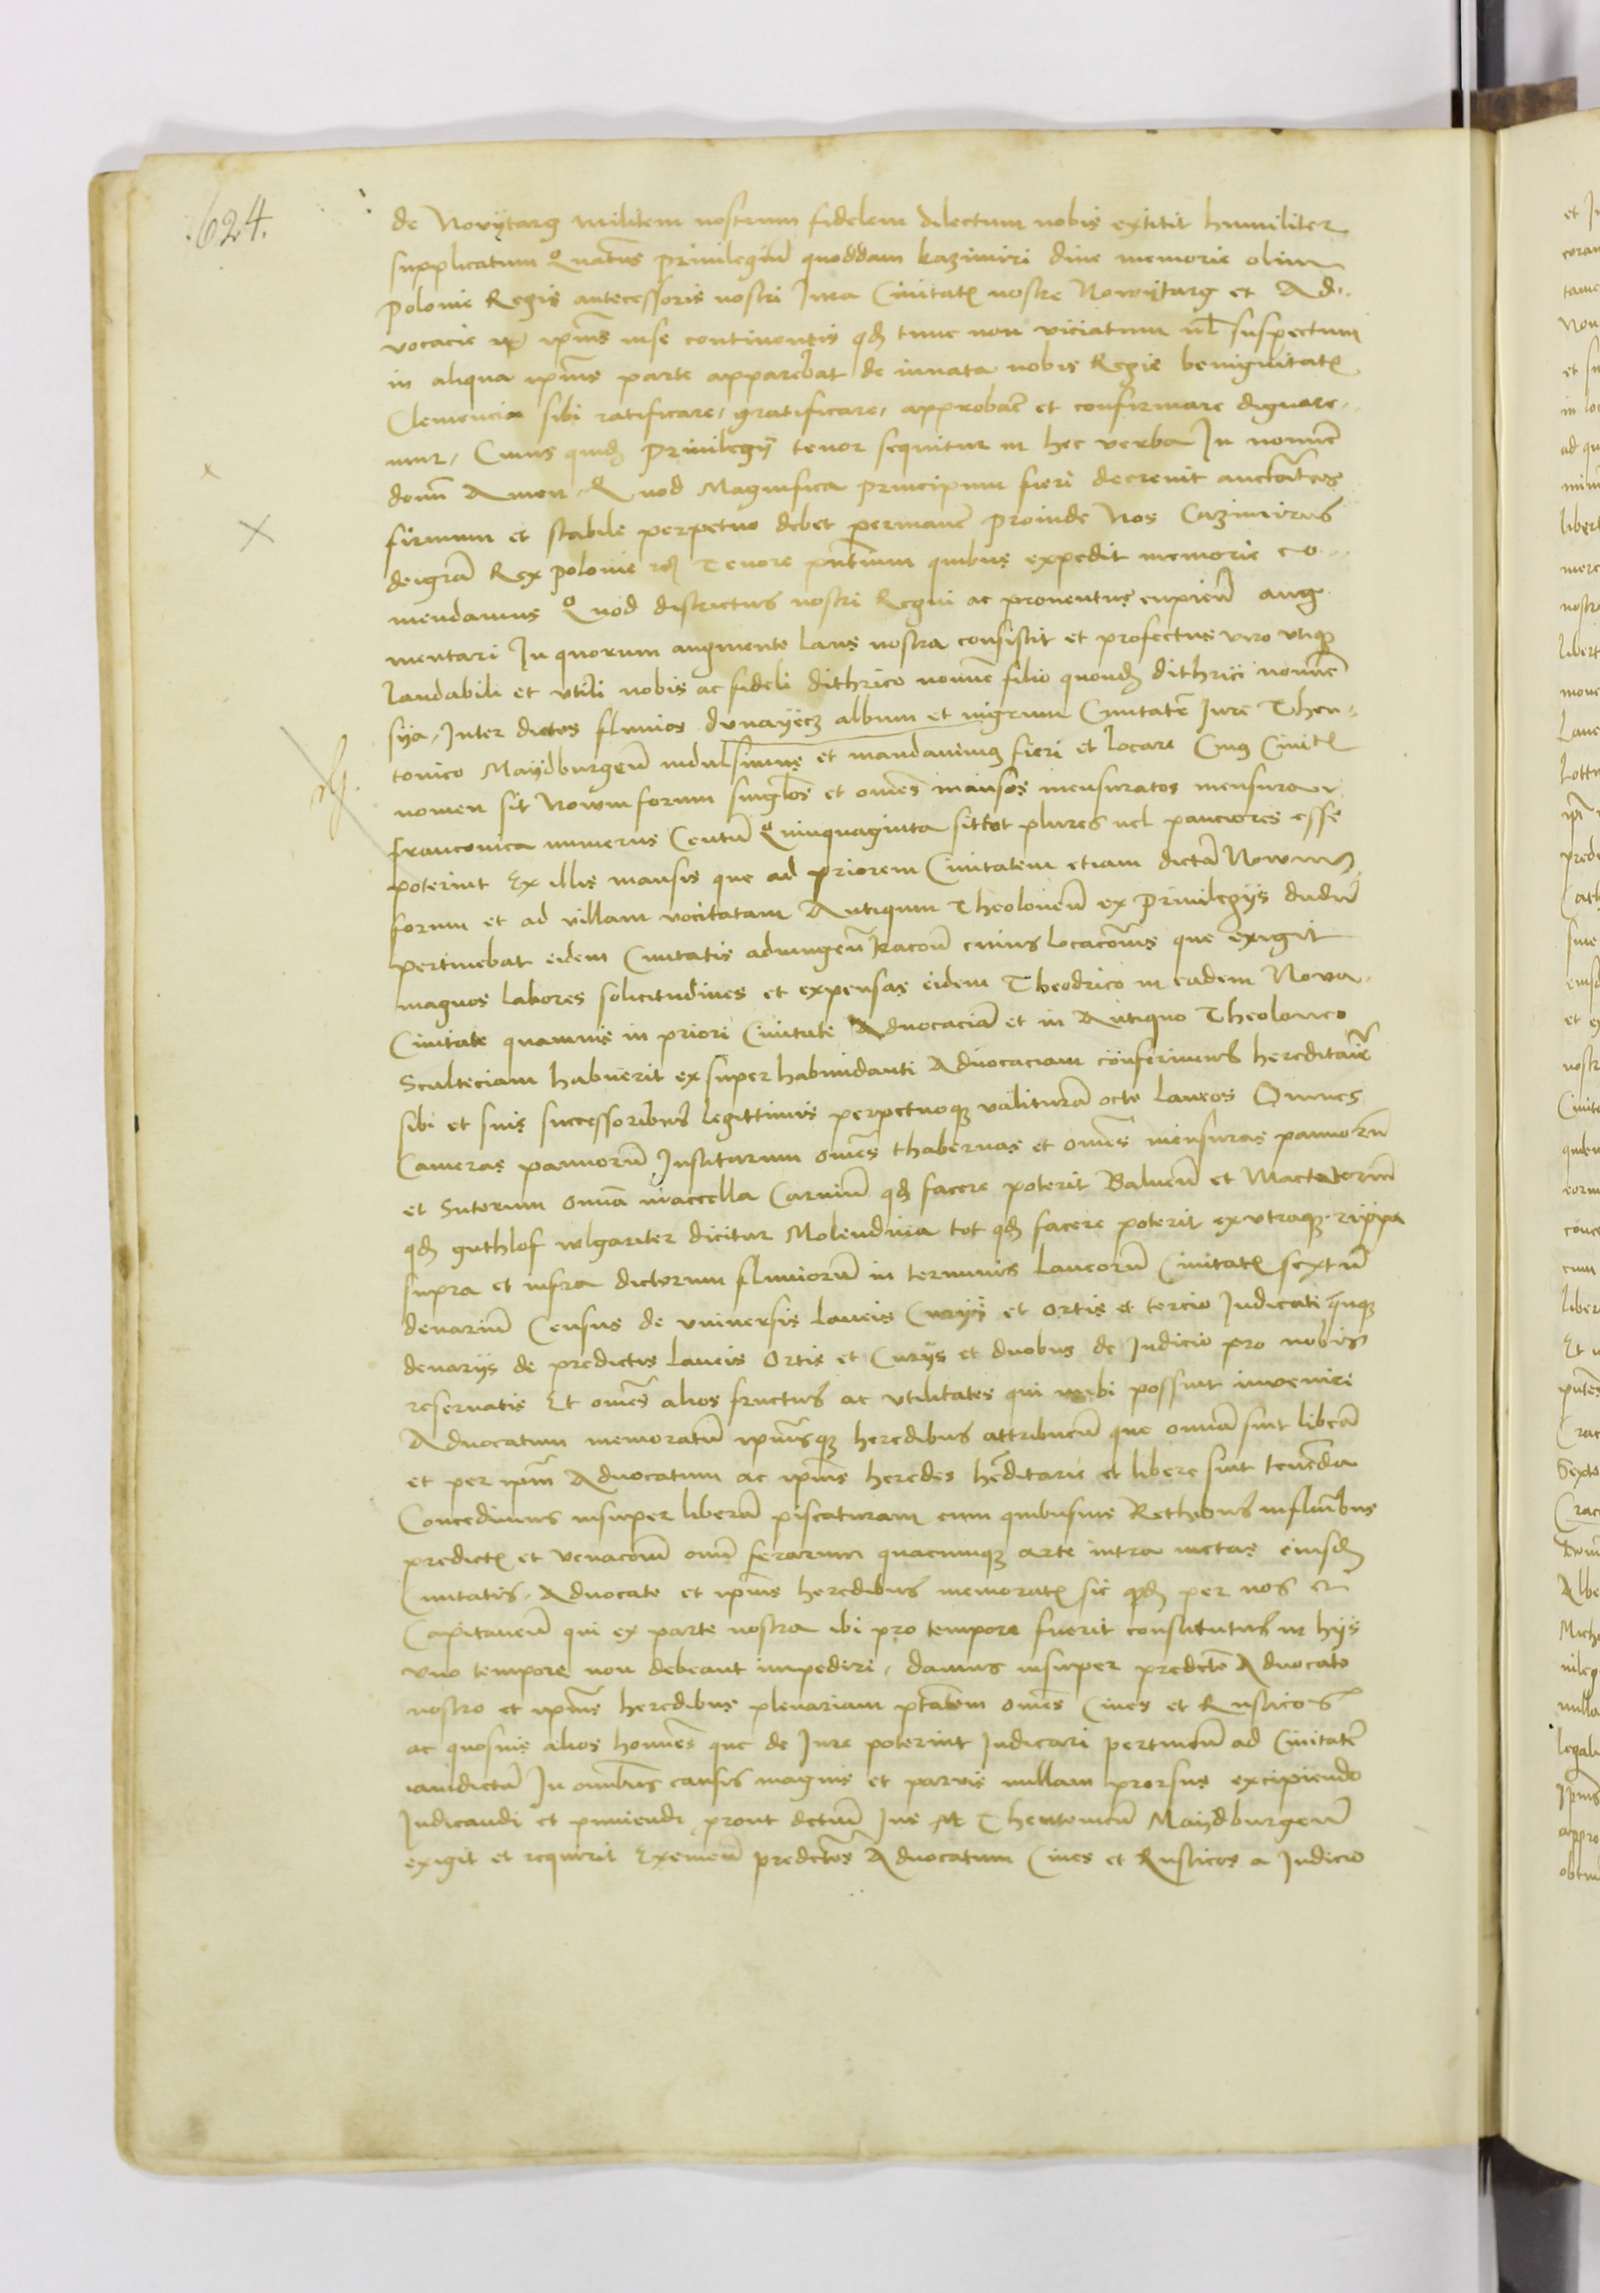 624.
de Novytarg militem nostrum fidelem dilectum nobis extitit humiliter
supplicatum Quatus privilegiū quoddam kazimiri dive memorie olim
Polonie Regis antecessoris nostri Jura Civitatꝭ nostre Nowytarg et Ad-
vocacie ipīus inse continentis qd tunc non viciatum nl suspectum
in aliqua ipīus parte apparebat de innata nobis Regie benignitatꝭ
Clemencia sibi ratificare, gratificare, approbaē et confirmare dignare-
mur, Cuius quidē Privilegij tenor sequitur in hec verba In nomīe
domī Amen. Quod Magnifica principum fieri decrevit auctātas
firmum et stabile perpetuo debet permanē proinde Nos Cazimirus
deigrā Rex polonie rc̄ Tenore pn̄tium quibus expedit memorie co-
mendamus Quod districtus nostri Regni ac proventus cupieñ aug-
mentari In quorum augmento laus nostra consistit et profectus viro vtiqꝫ
laudabili et vtili nobis ac fideli dithrico nomīe filio quondā dithrici nomīe
sya, Inter dictos fluvios dunayecz album et nigrum Civitatē Jure Theu-
tonico Maydburgeñ indulsimus et mandavimus fieri et locare Cuius Civitꝭ
nomen sit Nowmforum singlos et omēs mansos mensuratos mensura
franconica numerus Centū Quinquaginta sit tot plures vel pauciores esse
poterint Ex illis mansis que ad priorem Civitatem etiam dictā Nowm
forum et ad villam vocitatam Antiqum Theoloneū ex Privilegijs dudū
pertinebat eidem Civitatis adiungeñ Racoñ cuius locacōnis que exigit
magnos labores solicitudines et expensas eidem Theodrico in eadem Nova
Civitate quamvis in priori Civitate Advocaciā et in Antiquo Theoloneo
Sculteciam habuerit ex superhabundanti Advocaciam conferimus hereditariē
sibi et suis successoribus legittimis perpetuoqꝫ valiturā octo laneos Omnes
Cameras pannorū Institorum omēs thabernas et omēs mensuras pannorū
et Sutorum omīa maccella Carniū qd facere poterit Balneū et Mactatoriū
qd guthlof wlgariter dicitur Molendina tot qd facere poterit exutraqꝫ rippa
supra et infra dictorum fluviorū in terminis laneorū Civitatꝭ sextū
denariū Census de universis laneis Curijs et ortis et tercio Judicati quīqꝫ
denarijs de predictis laneis Ortis et Curijs et duobus de Judicio pro nobis
reservatis Et omēs alios fructus ac vtilitates qui inibi possunt invenire
Advocatum memoratū ipīusqꝫ heredibus attribueñ que omīa sint liberā
et per ipīm Advocatum ac ipīus heredes hēditarie et libere sint tenēda
Concedimus insuper liberā piscaturam cum quibusvis Rethibus in fluībus
predictꝭ et venacoñ omī ferarum quacumqꝫ arte intra metas eiusdē
Civitatis. Advocato et ipīus heredibus memoratꝭ sic qd per nos et
Capitaneū qui ex parte nostra ibi pro tempore fuerit constitutus in hijs
vno tempore non debeant impediri, damus insuper predicto Advocato
nostro et ipīus heredibus plenariam ptātem omēs Cives et Rusticos
ac quosvis alios homīes que de Jure poterint Judicari pertineñ ad Civitatē
iamdictā In omībus causis magnis et parvis nullam prorsus excipiendo
Judicandi et puniendi prout dictum Jus Theutonicū Maydburgeñ
exigit et requirit Eximeñ predictos Advocatum Cives et Rusticos a Judicio